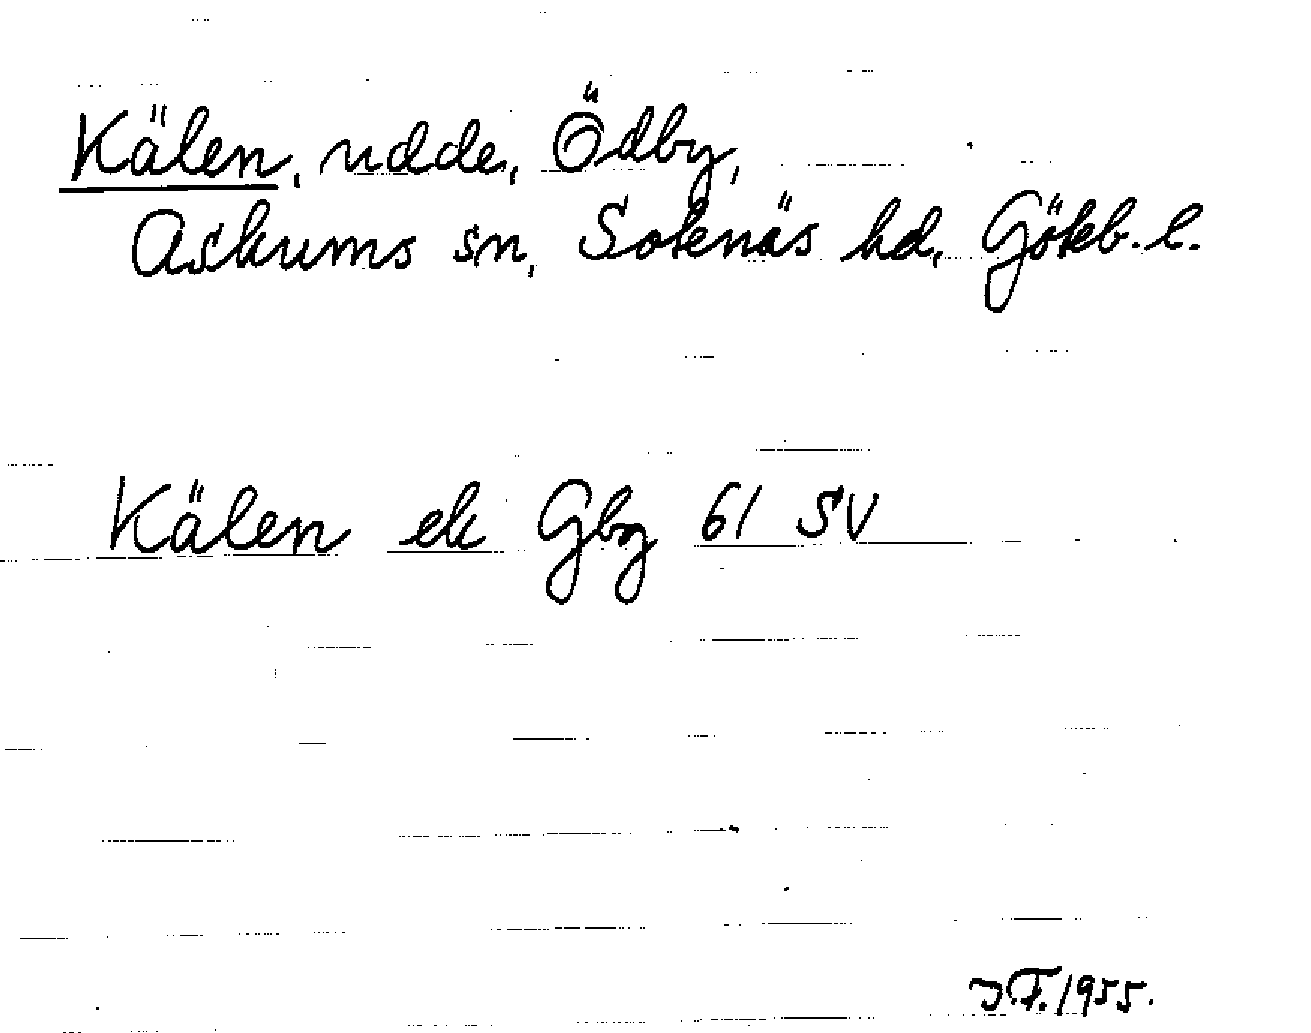 Kälen, udde, Ödby,
Askums sn, Sotenäs hd, Göteb. l.
Kälen ek Gbg 61 SV
J F. 1955.